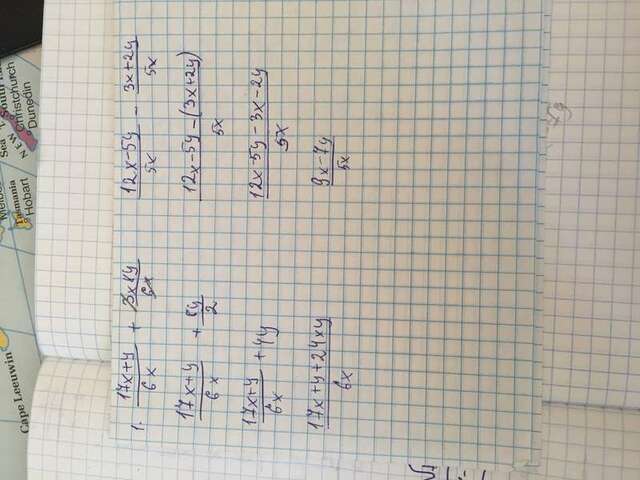 Cape Leeuwin
Tasmania
Hobart
Sea
South
Christchurch
Dunedin
1. (17x+y)/(6x) + (3x8y)/(6x)
(17x+y)/(6x) + (8y)/2
(17x+y)/(6x) + 4y
(17x+y+24xy)/(6x)
(12x-5y)/(5x) - (3x+2y)/(5x)
(12x-5y-(3x+2y))/(5x)
(12x-5y-3x-2y)/(5x)
(9x-7y)/(5x)